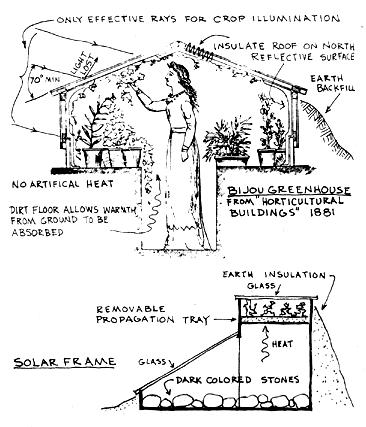 ONLY EFFECTIVE RAYS FOR CROP ILLUMINATION
LIGHT
LOST
70° MIN
INSULATE ROOF ON NORTH
REFLECTIVE SURFACE
EARTH
BACKFILL
NO ARTIFICAL HEAT
DIRT FLOOR ALLOWS WARMTH
FROM GROUND TO BE
ABSORBED
BIJOU GREENHOUSE
FROM "HORTICULTURAL
BUILDINGS" 1881
EARTH INSULATION
GLASS
REMOVABLE
PROPAGATION TRAY
HEAT
SOLAR FRAME
GLASS
DARK COLORED STONES